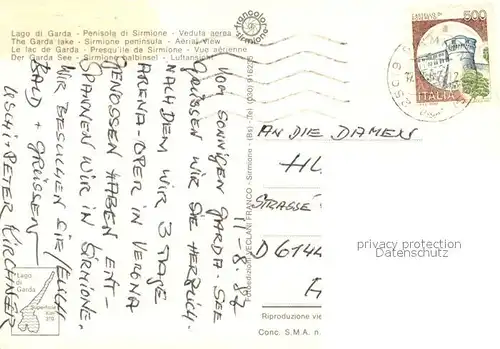 Lago di Garda - Penisola di Sirmione - Veduta aerea
The Garda lake - Sirmione peninsula - Aerial View
Le lac de Garde - Presqu'île de Sirmione - Vue aérienne
Der Garda See - Sirmione halbinsel - Luftansicht
11-8.87
VOM SONNIGEN GARDA-SEE
GRÜSSEN WIR SIE HERZLICH.
NACHDEM WIR 3 TAGE
ARENA-OPER IN VERONA
GENOSSEN HABEN ENT-
SPANNEN WIR IN SIRMIONE.
WIR BESUCHEN SIE
BALD + GRÜSSEN
USCHI + PETER KIRCHNER
Lago
di
Garda
Superficie
Km²
370
VECLANI FRANCO - Sirmione - (Bs) - Tel. (030)
500
ITALIA
AN DIE DAMEN
HU
STRASSE
D 6144
privacy protection
Datenschutz
Riproduzione vie
Conc. S.M.A. n.